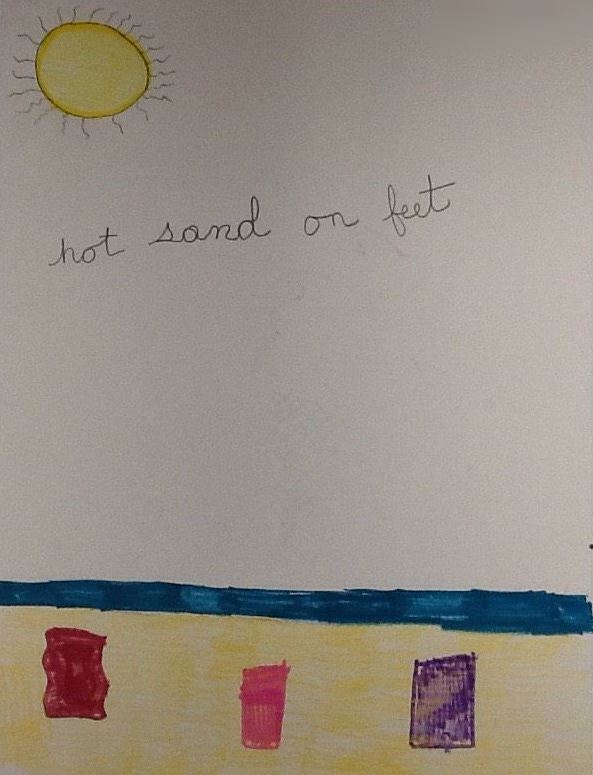 hot sand on feet